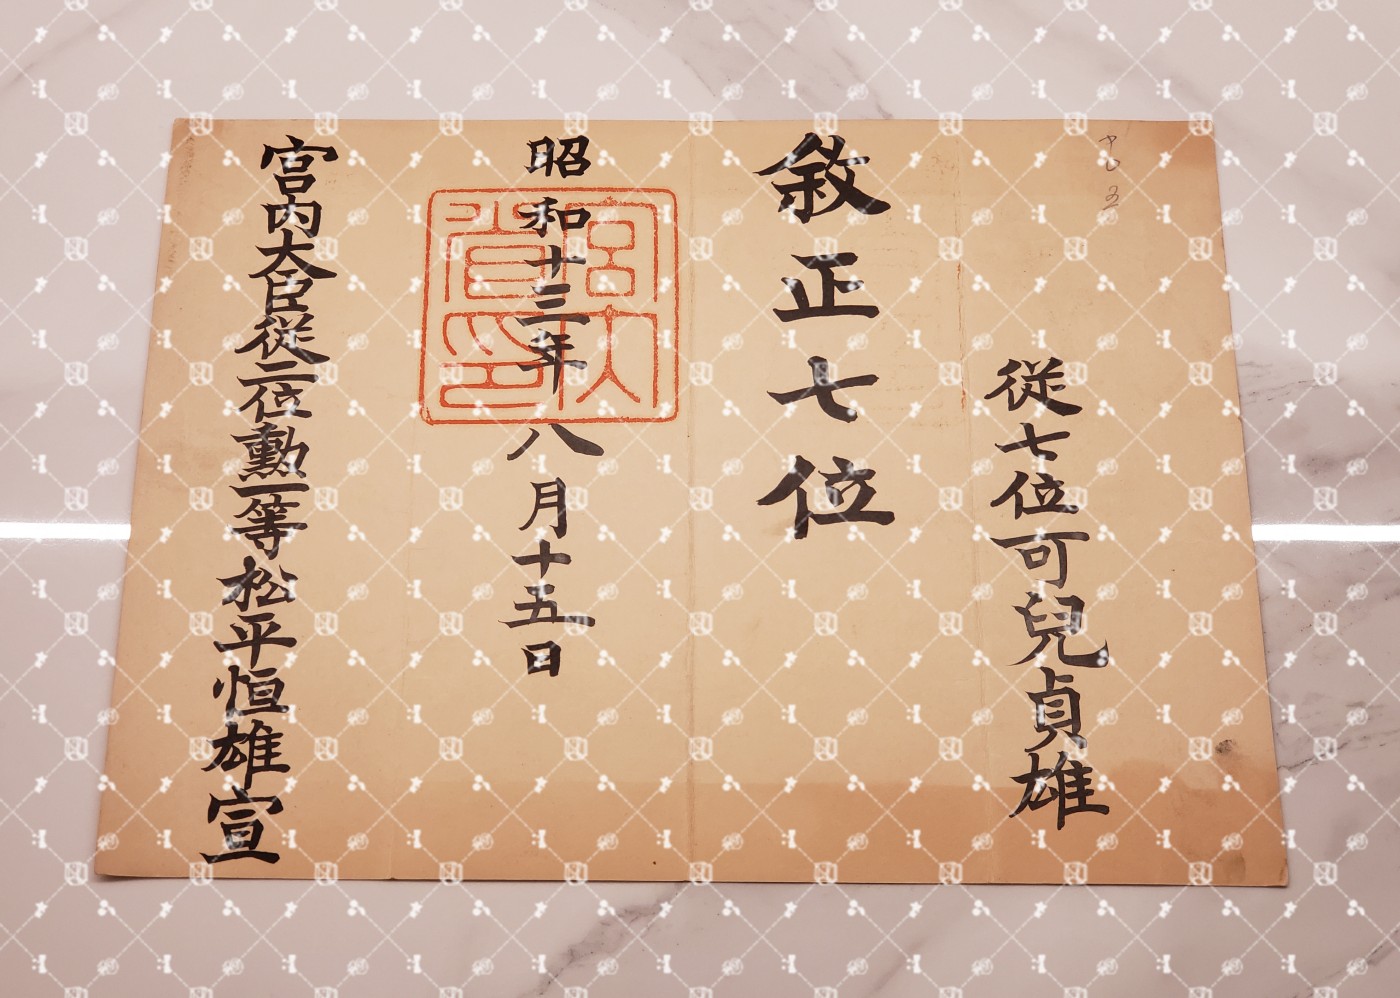 従七位可兒貞雄
敘正七位
昭和十三年八月十五日
宮内大臣従二位勲一等松平恒雄宣